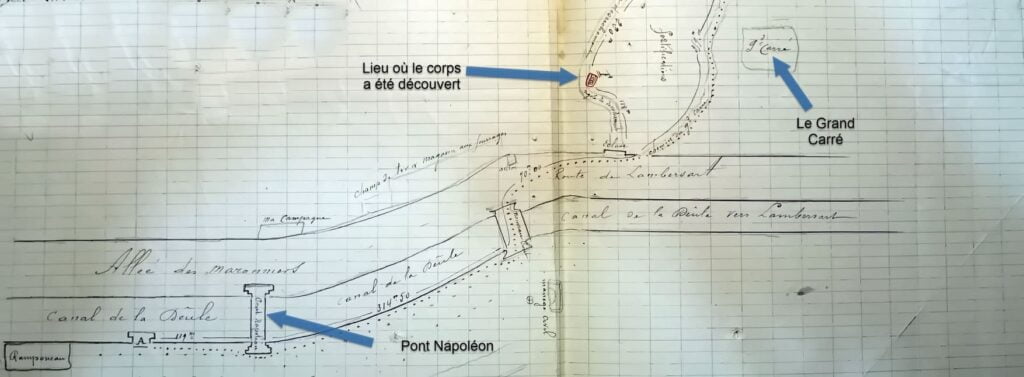 Lieu où le corps
a été découvert
Fortifications
gd Carré
Le Grand
Carré
champ de tir & magasin aux fourrages
Route de Lambersart
ma Campagne
canal de la Dêule vers Lambersart
Allée des maronniers
canal de la Dêule
314m50
canal de la Dêule
Pont Napoléon
119m
A
Pont Napoléon
Ramponeau